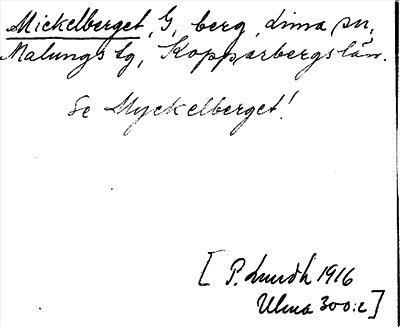 Mickelberget, G, berg, Lima sn,
Malungs tg, Kopparbergs län.
Se Myckelberget!
[P. Lundh 1916
Ulma 300:2]